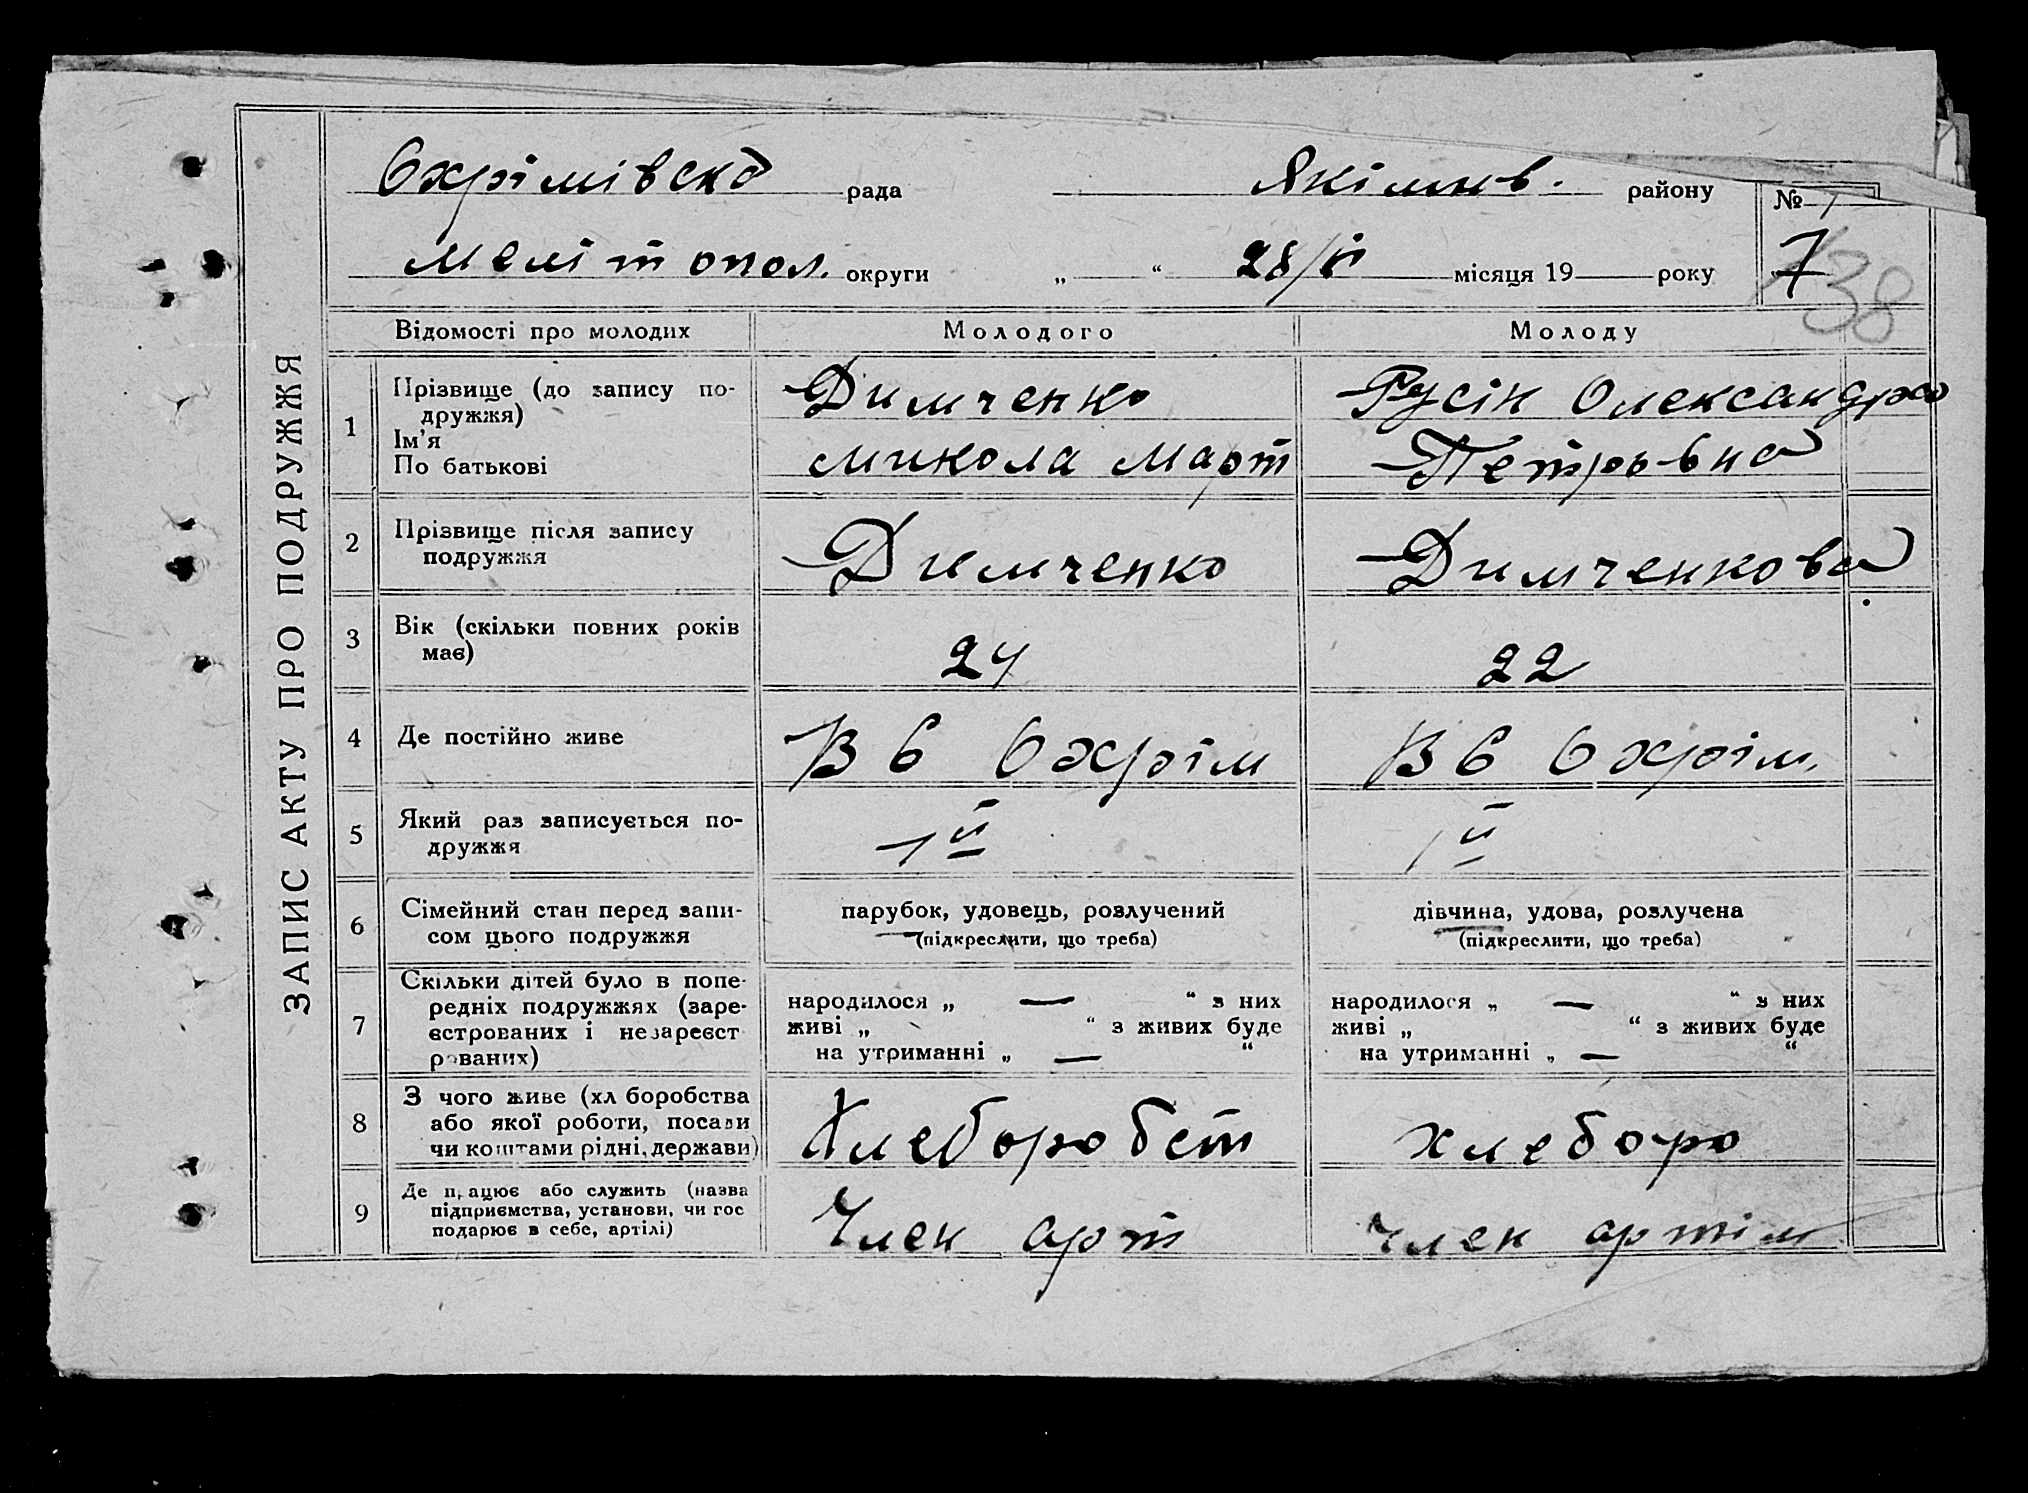 ЗАПИС АКТУ ПРО ПОДРУЖЖЯ
Охрімівска рада Якімив. району №
Мелітопол. округи „ “ 28/ місяця 19 року 7
138
Відомості про молодих Молодого Молоду
1 Прізвище (до запису по-
дружжя)
Ім'я
По батькові
Димченко
микола Март
Русін Олександра
Петровна
2 Прізвище після запису
подружжя
Димченко
Димченкова
3 Вік (скільки повних років
має)
24
22
4 Де постійно живе
В С Охрім
В С Охрім.
5 Який раз записується по-
дружжя
1й
1й
6 Сімейний стан перед запи-
сом цього подружжя
парубок, удовець, розлучений
(підкреслити, що треба)
дівчина, удова, розлучена
(підкреслити, що треба)
7 Скільки дітей було в попе-
редніх подружжях (заре-
єстрованих і незареєст
рованих)
народилося „ — “ з них
живі „ “ з живих буде
на утриманні „ — “
народилося „ — “ з них
живі „ “ з живих буде
на утриманні „ — “
8 З чого живе (хл боробства
або якої роботи, посади
чи коштами рідні, держави)
Хлеборобст
хлеборо
9 Де працює або служить (назва
підприємства, установи, чи гос
подарює в себе, артілі)
Член арт
член артіли